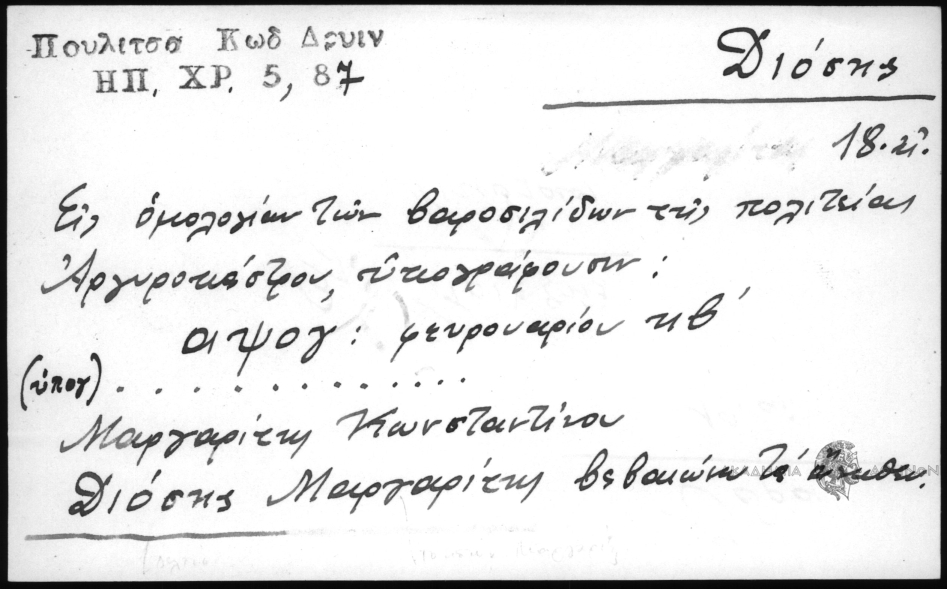 Πουλιτσα Κωδ Δρυιν
ΗΠ. ΧΡ. 5, 87
Διόσης
18. αἰ.
Εἰς ὁμολογίαν τῶν βαροσιλίδων τῆς πολιτείας
Ἀργυροκάστρου, ὑπογράφουσιν :
αψογ : φευρουαρίου κβ'
(ὑπογ) . . . . . . . . . . . . . .
Μαργαρίτης Κωνσταντίνου
Διόσης Μαργαρίτης βεβαιώνω τὰ ἄνωθεν.
ΑΚΑΔΗΜΙΑ ΑΘΗΝΩΝ